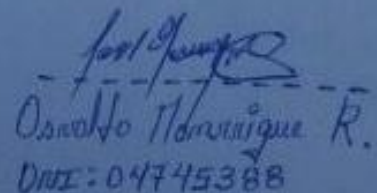 Osvaldo Manrrique R.
DNI: 04745388